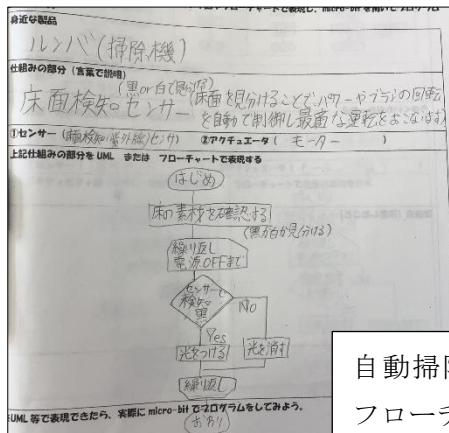 ローチャートで表現し、micro-bitを用いてプログラム
身近な製品
ルンバ(掃除機)
仕組みの部分(言葉で説明)
(黒or白で見分ける)
床面検知センサー(床面を見分けることで、パワーやブラシの回転
を自動で制御し最適な運転をおこないます)
①センサー(床面検知(赤外線)センサ) ②アクチュエータ( モーター )
上記仕組みの部分をUML または フローチャートで表現する
はじめ
床の素材を確認する
(黒か白か見分ける)
繰り返し
電源OFFまで
センサーで
検知
黒
No
Yes
光をつける 光を消す
繰り返し
おわり
UML等で表現できたら、実際にmicro-bitでプログラムをしてみよう。
自動掃除
フローチ